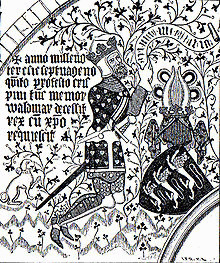 + anno milleno
ter c et septuageno
quito profesto cris
pini fuit memor
waldmar decessit
rex cu xpo
requiescit